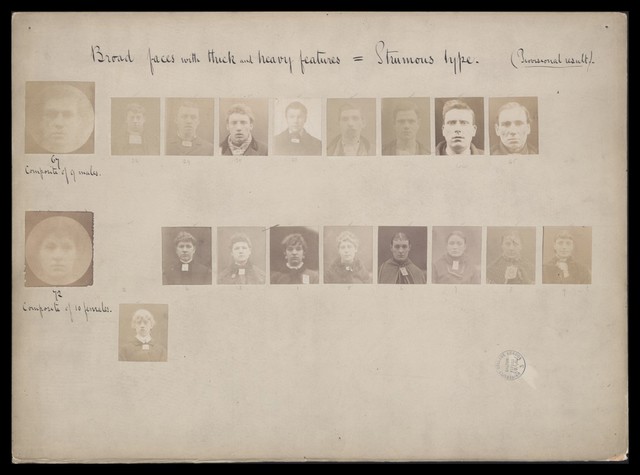 Broad faces with thick and heavy features = Strumous type. (Provisional result).
67
Composite of 9 males.
72
Composite of 10 females.